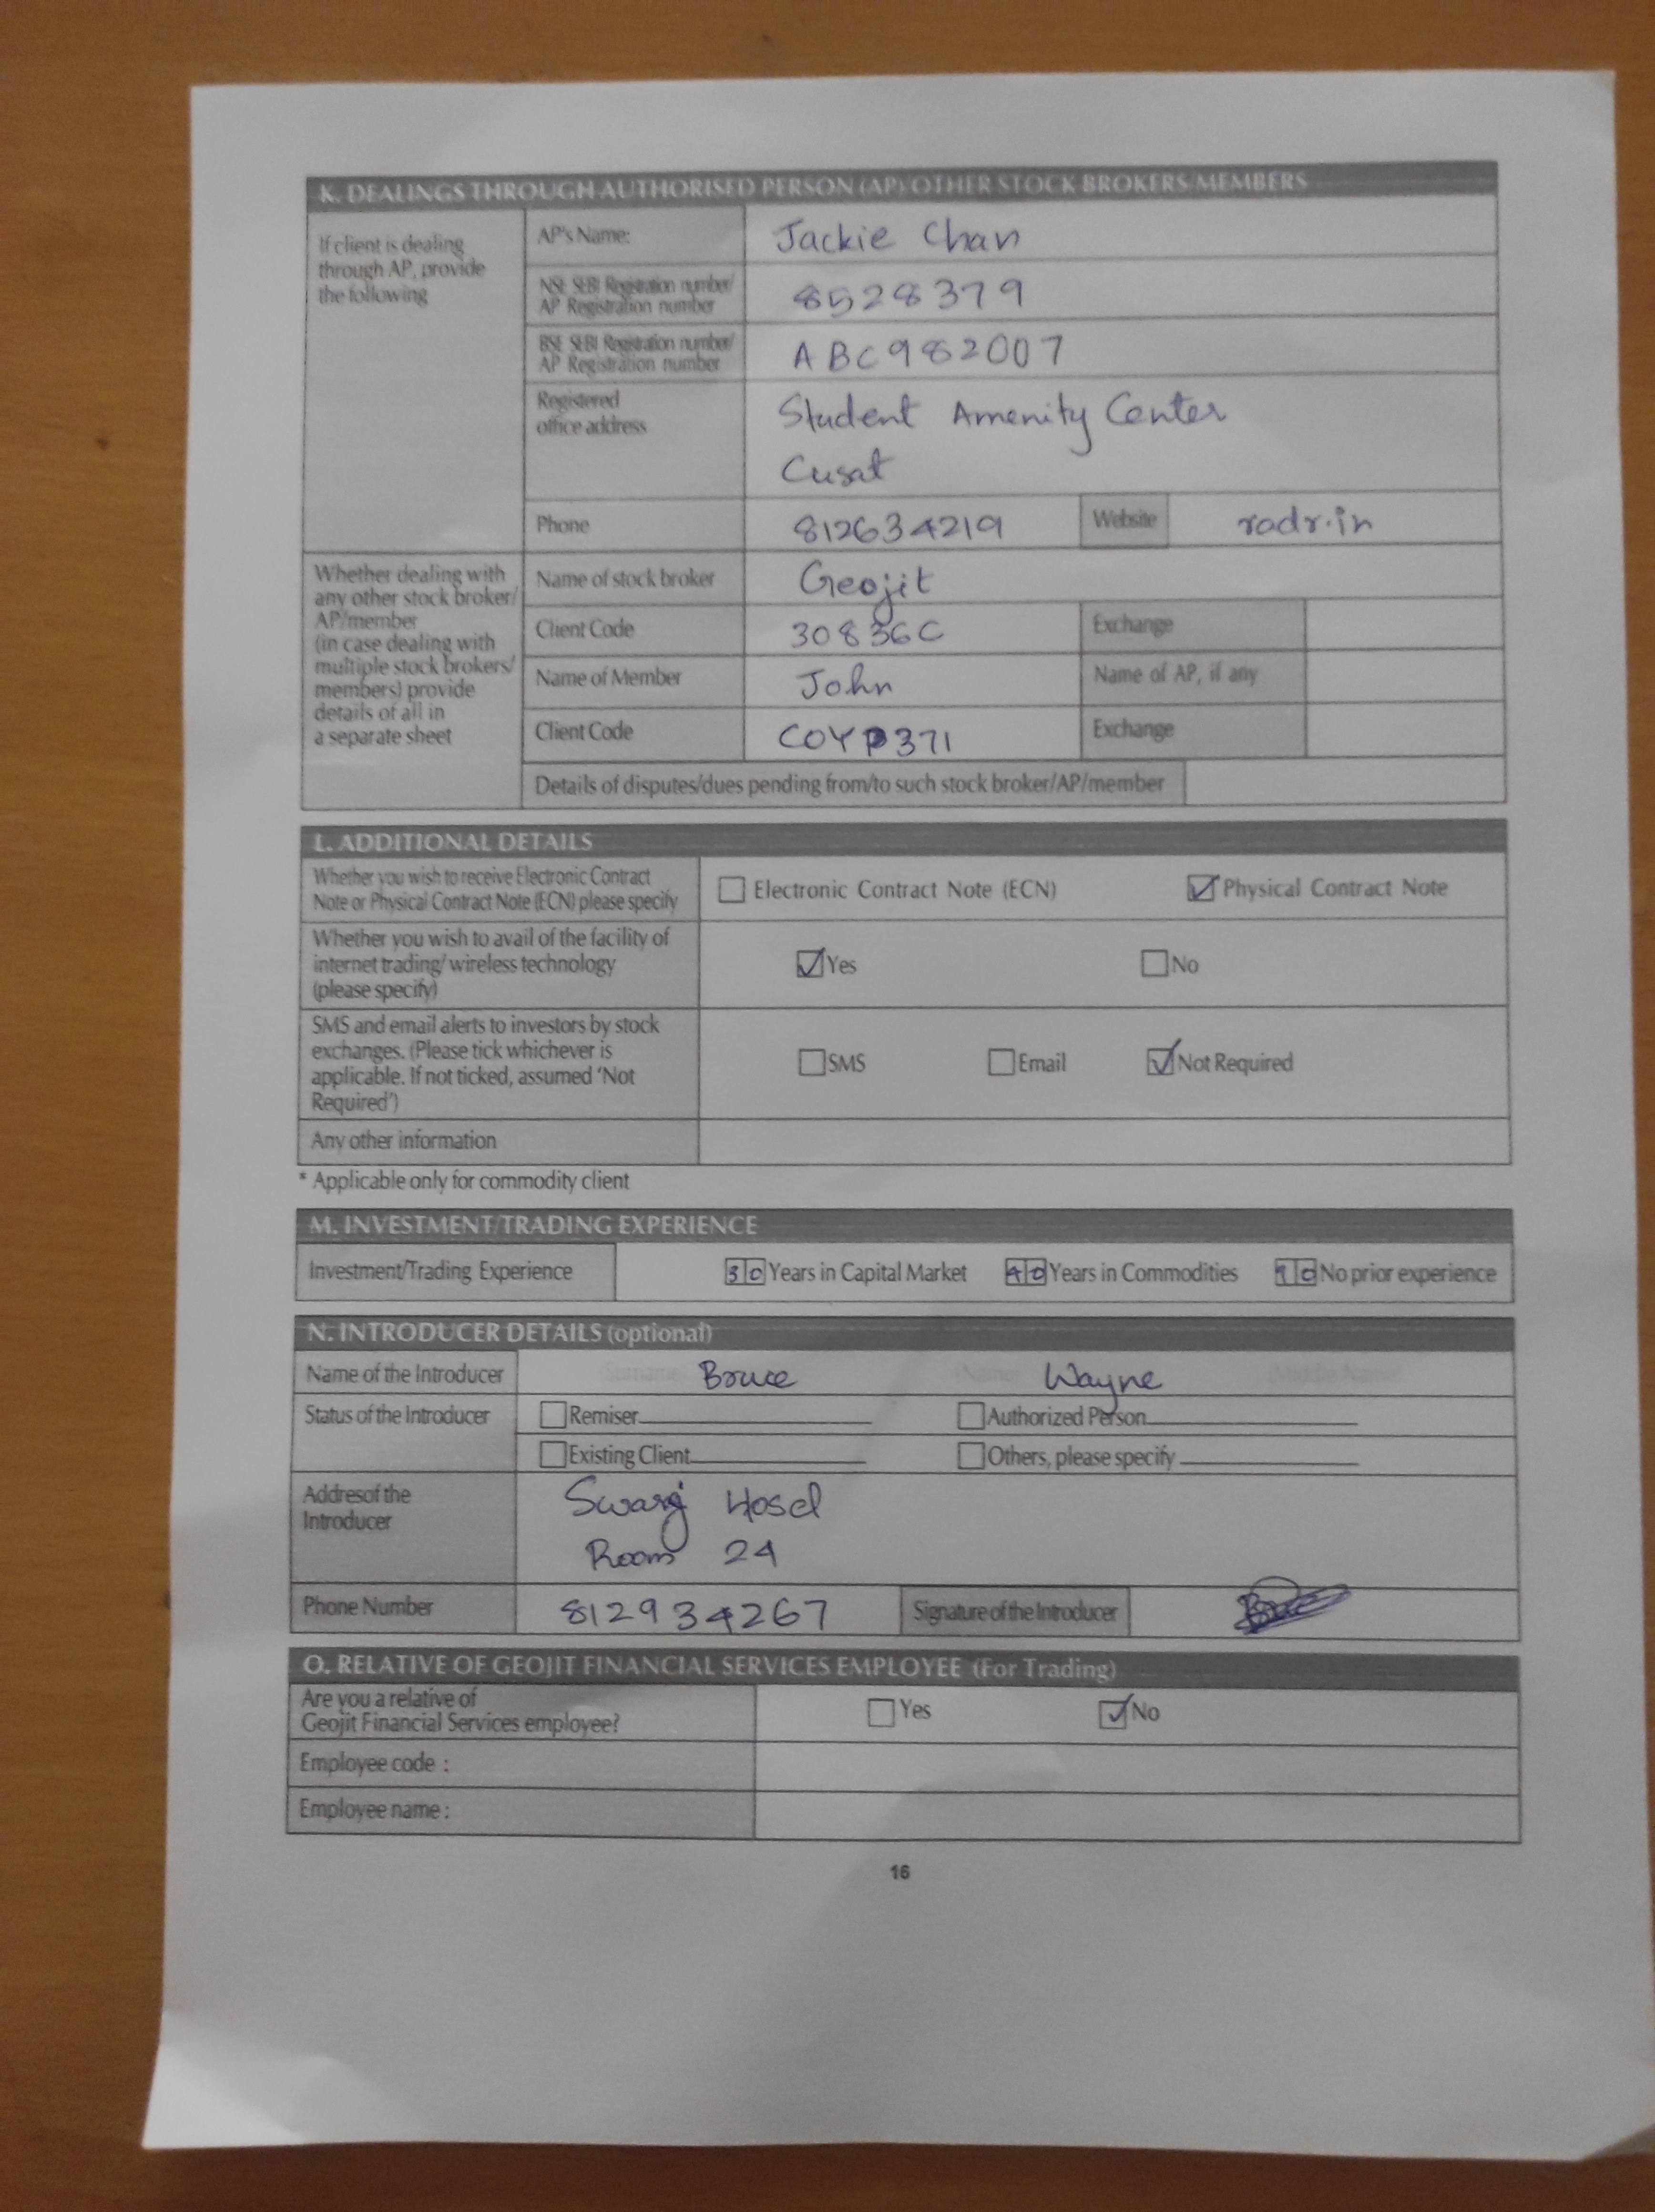 K. DEALINGS THROUGH AUTHORISED PERSON (AP)/OTHER STOCK BROKERS/MEMBERS
If client is dealing
through AP, provide
the following
AP's Name:
Jackie Chan
NSE SEBI Registration number/
AP Registration number
8528379
BSE SEBI Registration number/
AP Registration number
ABC982007
Registered
office address
Student Amenity Center
Cusat
Phone
812634219
Website
radr.in
Whether dealing with
any other stock broker/
AP/member
(in case dealing with
multiple stock brokers/
members) provide
details of all in
a separate sheet
Name of stock broker
Geojit
Client Code
30836C
Exchange
Name of Member
John
Name of AP, if any
Client Code
COYP371
Exchange
Details of disputes/dues pending from/to such stock broker/AP/member
L. ADDITIONAL DETAILS
Whether you wish to receive Electronic Contract
Note or Physical Contract Note (ECN) please specify
Electronic Contract Note (ECN)
Physical Contract Note
Whether you wish to avail of the facility of
internet trading/ wireless technology
(please specify)
Yes
No
SMS and email alerts to investors by stock
exchanges. (Please tick whichever is
applicable. If not ticked, assumed 'Not
Required')
SMS
Email
Not Required
Any other information
* Applicable only for commodity client
M. INVESTMENT/TRADING EXPERIENCE
Investment/Trading Experience
30 Years in Capital Market
40 Years in Commodities
10 No prior experience
N. INTRODUCER DETAILS (optional)
Name of the Introducer
(Surname) Bruce
(Name) Wayne
(Middle Name)
Status of the Introducer
Remiser
Authorized Person
Existing Client
Others, please specify
Addresof the
Introducer
Hosel
Room 24
Phone Number
812934267
Signature of the Introducer
O. RELATIVE OF GEOJIT FINANCIAL SERVICES EMPLOYEE (For Trading)
Are you a relative of
Geojit Financial Services employee?
Yes
No
Employee code :
Employee name :
16